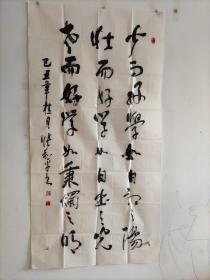 少而好學如日出之陽
壯而好学如日中之光
老而好学如秉燭之明
己丑年桂月